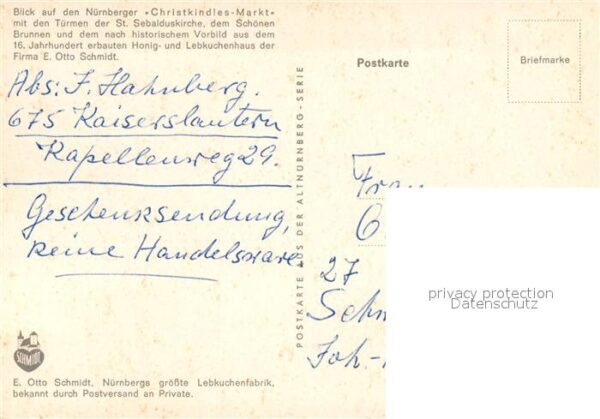 Blick auf den Nürnberger »Christkindles-Markt«
mit den Türmen der St. Sebalduskirche, dem Schönen
Brunnen und dem nach historischem Vorbild aus dem
16. Jahrhundert erbauten Honig- und Lebkuchenhaus der
Firma E. Otto Schmidt.
Abs: F. Hahnberg.
675 Kaiserslautern
Kapellenweg 29.
Geschenksendung,
keine Handelsware
SCHMIDT
E. Otto Schmidt, Nürnbergs größte Lebkuchenfabrik,
bekannt durch Postversand an Private.
POSTKARTE AUS DER ALTNÜRNBERG-SERIE
Postkarte
Briefmarke
Frau
27
Schw
Joh.-
privacy protection
Datenschutz